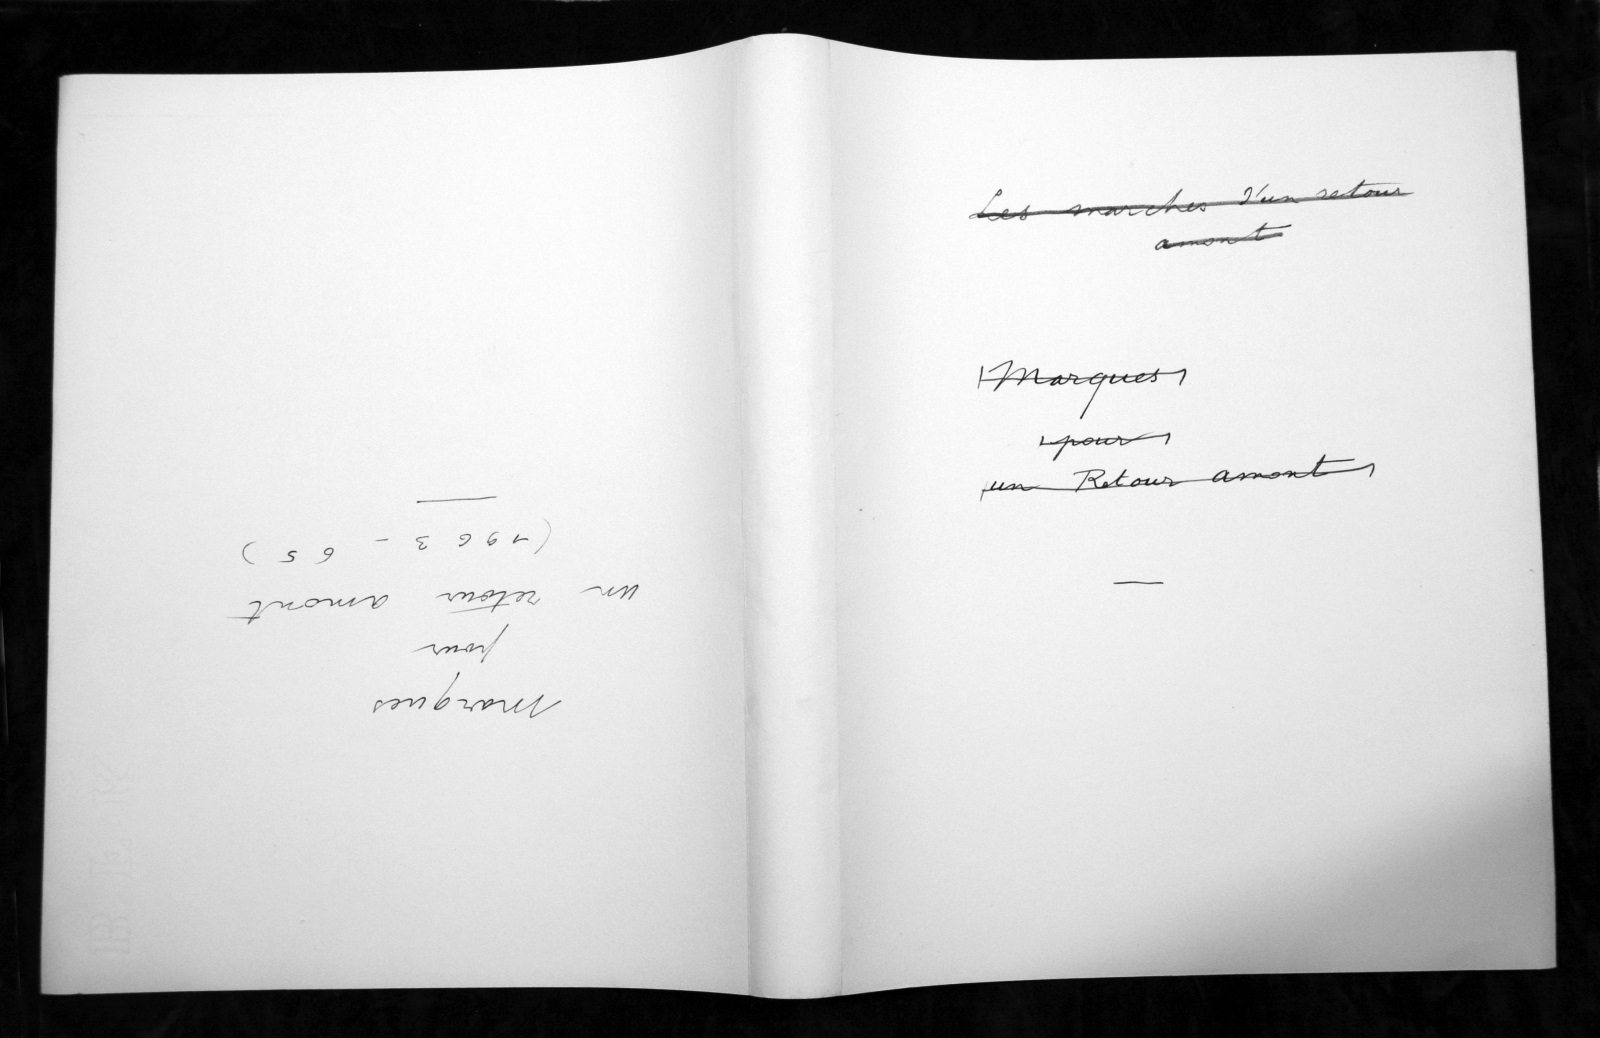 Marques
pour
un retour amont
(1963 - 65)
Les marches d'un retour
amont
Marques
pour
un Retour amont